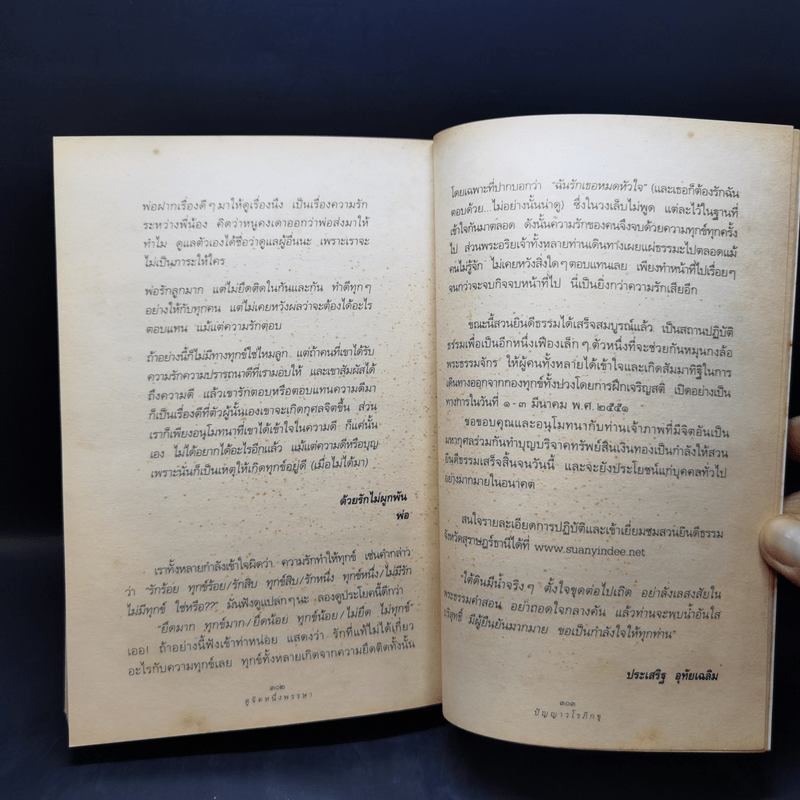 พ่อฝากเรื่องดีๆ มาให้ดูเรื่องนึง เป็นเรื่องความรัก
ระหว่างพี่น้อง คิดว่าหนูคงเดาออกว่าพ่อส่งมาให้
ทำไม ดูแลตัวเองได้ชื่อว่าดูแลผู้อื่นนะ เพราะเราจะ
ไม่เป็นภาระให้ใคร
พ่อรักลูกมาก แต่ไม่ยึดติดในกันและกัน ทำดีทุกๆ
อย่างให้กับทุกคน แต่ไม่เคยหวังผลว่าจะต้องได้อะไร
ตอบแทน แม้แต่ความรักตอบ
ถ้าอย่างนี้ก็ไม่มีทางทุกข์ใช่ไหมลูก แต่ถ้าคนที่เขาได้รับ
ความรักความปรารถนาดีที่เรามอบให้ และเขาสัมผัสได้
ถึงความดี แล้วเขารักตอบหรือตอบแทนความดีมา
ก็เป็นเรื่องดีที่ตัวผู้นั้นเองเขาจะเกิดกุศลจิตขึ้น ส่วน
เราก็เพียงอนุโมทนาที่เขาได้เข้าใจในความดี ก็แค่นั้น
เอง ไม่ได้อยากได้อะไรอีกแล้ว แม้แต่ความดีหรือบุญ
เพราะนั่นก็เป็นเหตุให้เกิดทุกข์อยู่ดี (เมื่อไม่ได้มา)
ด้วยรักไม่ผูกพัน
พ่อ
เราทั้งหลายกำลังเข้าใจผิดว่า ความรักทำให้ทุกข์ เช่นคำกล่าว
ว่า "รักร้อย ทุกข์ร้อย/รักสิบ ทุกข์สิบ/รักหนึ่ง ทุกข์หนึ่ง/ไม่มีรัก
ไม่มีทุกข์ ใช่หรือ??" มันฟังดูแปลกๆ นะ ลองดูประโยคนี้ดีกว่า
"ยึดมาก ทุกข์มาก/ยึดน้อย ทุกข์น้อย/ไม่ยึด ไม่ทุกข์"
เออ! ถ้าอย่างนี้ฟังเข้าท่าหน่อย แสดงว่า รักที่แท้ไม่ได้เกี่ยว
อะไรกับความทุกข์เลย ทุกข์ทั้งหลายเกิดจากความยึดติดทั้งนั้น
๓๐๒
ดูจิตหนึ่งพรรษา
โดยเฉพาะที่ปากบอกว่า "ฉันรักเธอหมดหัวใจ" (และเธอก็ต้องรักฉัน
ตอบด้วย...ไม่อย่างนั้นน่าดู) ซึ่งในวงเล็บไม่พูด แต่ละไว้ในฐานที่
เข้าใจกันมาตลอด ดังนั้นความรักของคนจึงจบด้วยความทุกข์ทุกครั้ง
ไป ส่วนพระอริยเจ้าทั้งหลายท่านเดินทางเผยแผ่ธรรมะไปตลอดแม้
คนไม่รู้จัก ไม่เคยหวังสิ่งใดๆ ตอบแทนเลย เพียงทำหน้าที่ไปเรื่อยๆ
จนกว่าจะจบกิจจบหน้าที่ไป นี่เป็นยิ่งกว่าความรักเสียอีก
ขณะนี้สวนยินดีธรรมได้เสร็จสมบูรณ์แล้ว เป็นสถานปฏิบัติ
ธรรมเพื่อเป็นอีกหนึ่งเฟืองเล็กๆ ตัวหนึ่งที่จะช่วยกันหมุนกงล้อ
พระธรรมจักร ให้ผู้คนทั้งหลายได้เข้าใจและเกิดสัมมาทิฐิในการ
เดินทางออกจากกองทุกข์ทั้งปวงโดยการฝึกเจริญสติ เปิดอย่างเป็น
ทางการในวันที่ ๑-๓ มีนาคม พ.ศ.๒๕๕๑
ขอขอบคุณและอนุโมทนากับท่านเจ้าภาพที่มีจิตอันเป็น
มหากุศลร่วมกันทำบุญบริจาคทรัพย์สินเงินทองเป็นกำลังให้สวน
ยินดีธรรมเสร็จสิ้นจนวันนี้ และจะยังประโยชน์แก่บุคคลทั่วไป
อย่างมากมายในอนาคต
สนใจรายละเอียดการปฏิบัติและเข้าเยี่ยมชมสวนยินดีธรรม
จังหวัดสุราษฎร์ธานีได้ที่ www.suanyindee.net
"ใต้ดินมีน้ำจริงๆ ตั้งใจขุดต่อไปเถิด อย่าลังเลสงสัยใน
พระธรรมคำสอน อย่าถอดใจกลางคัน แล้วท่านจะพบน้ำอันใส
บริสุทธิ์ มีผู้ยืนยันมากมาย ขอเป็นกำลังใจให้ทุกท่าน"
ประเสริฐ อุทัยเฉลิม
๓๐๓
ปัญญาวโรภิกขุ